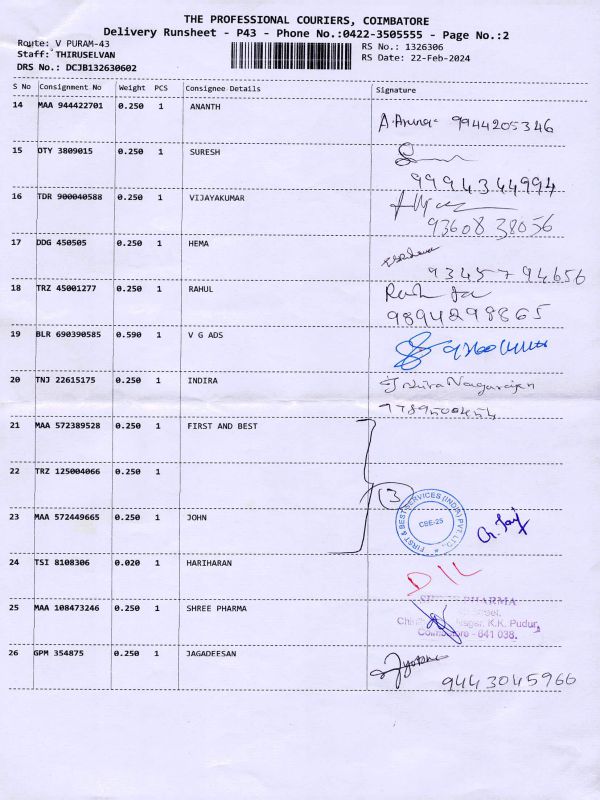 THE PROFESSIONAL COURIERS, COIMBATORE
Delivery Runsheet - P43 - Phone No.:0422-3505555 - Page No.:2
Route: V PURAM-43
Staff: THIRUSELVAN
DRS No.: DCJB132630602
RS No.: 1326306
RS Date: 22-Feb-2024
S No Consignment No Weight PCS Consignee Details Signature
14 MAA 944422701 0.250 1 ANANTH
9944205346
15 DTY 3809015 0.250 1 SURESH
9994344994
16 TDR 900040588 0.250 1 VIJAYAKUMAR
93608 38056
17 DDG 450505 0.250 1 HEMA
9345794656
18 TRZ 45001277 0.250 1 RAHUL
9894298865
19 BLR 690390585 0.590 1 V G ADS
20 TNJ 22615175 0.250 1 INDIRA
Indira Nagarajan
21 MAA 572389528 0.250 1 FIRST AND BEST
22 TRZ 125004066 0.250 1
(3)
FIRST & BEST SERVICES (INDIA) PVT LTD.
CBE-25
23 MAA 572449665 0.250 1 JOHN
24 TSI 8108306 0.020 1 HARIHARAN
D/L
25 MAA 108473246 0.250 1 SHREE PHARMA
PHARMA
K.K. Pudur,
641 038.
26 GPM 354875 0.250 1 JAGADEESAN
9443045966